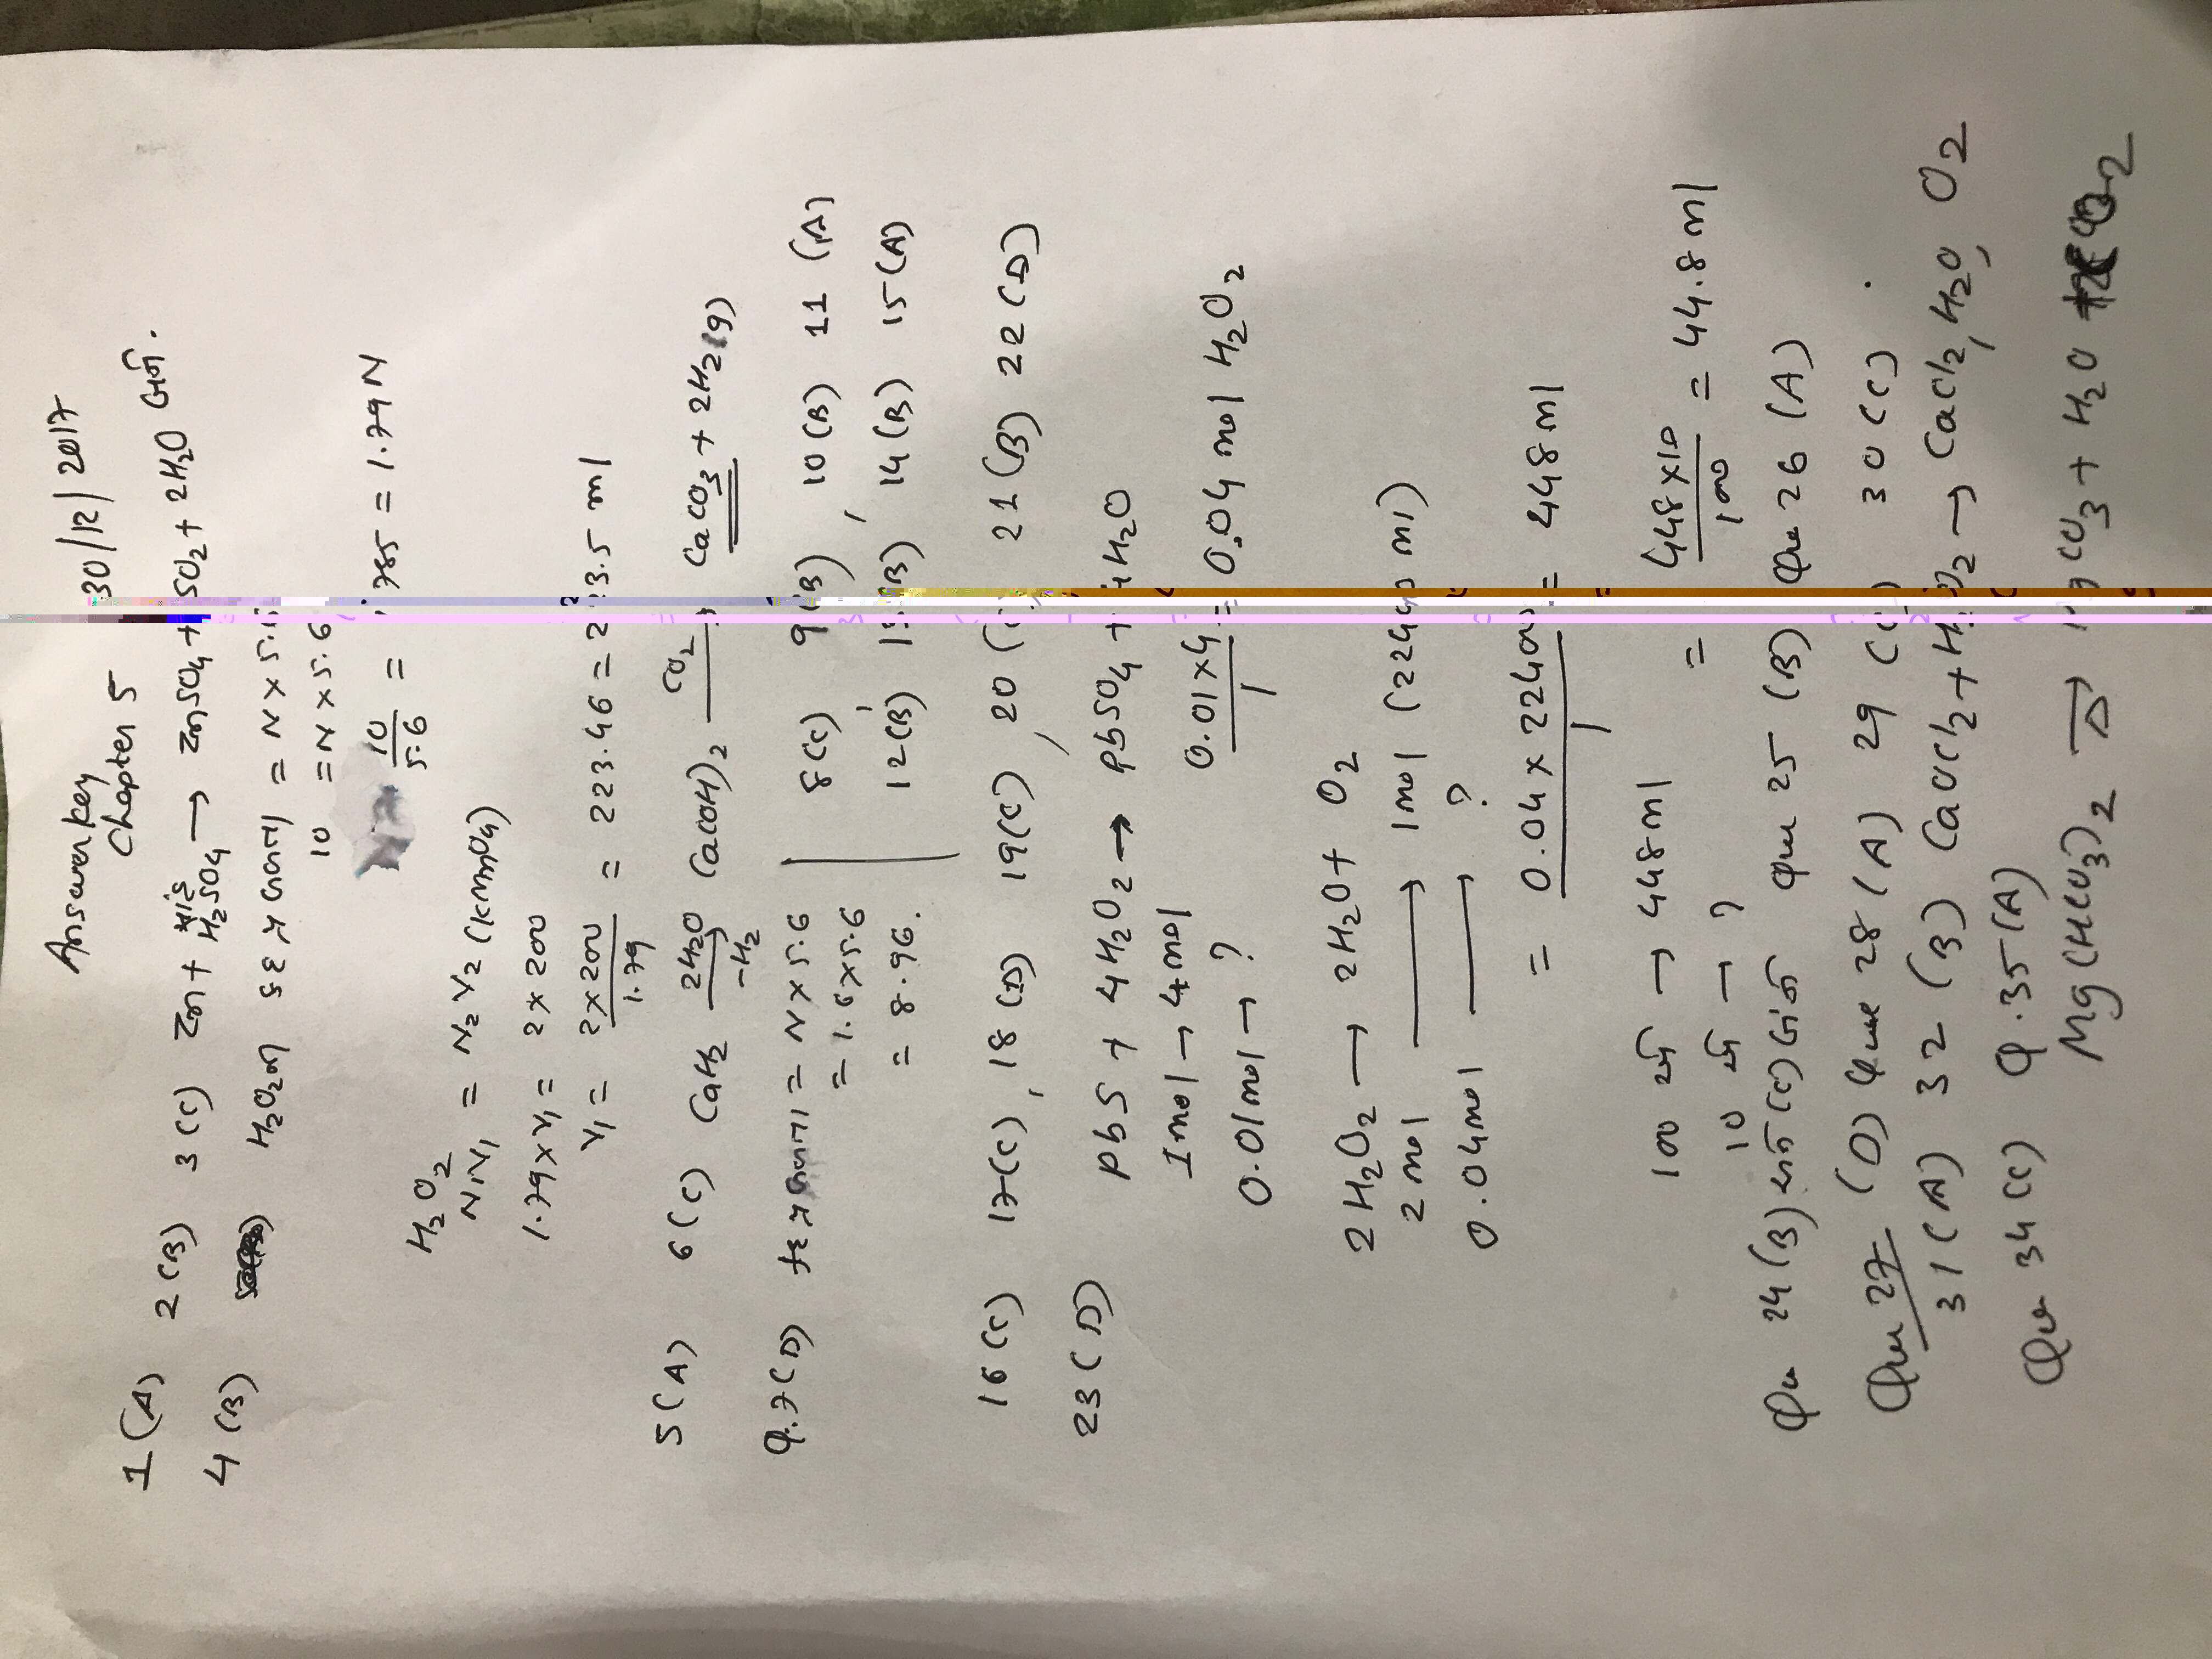 Answerkey 30/12/2017
Chapter 5
1(A) 2(B) 3(C) Zn + સાંદ્ર H2SO4 → ZnSO4 + SO2 + 2H2O બને.
4(B) H2O2ની કદ = N × 5.6
10 = N × 5.6
10/5.6 = 1.785 = 1.79N
H2O2
N1V1 = N2V2 (KMnO4)
1.79×V1 = 2×200
V1 = 2×200/1.79 = 223.46 = 223.5 ml
5(A) 6(C) CaH2 2H2O/-H2 Ca(OH)2 CO2→ CaCO3 + 2H2(g)
Q.7(D) = N×5.6 8(C) 9(B), 10(B) 11(A)
= 1.6×5.6 12(B), 13(B) 14(B) 15(A)
= 8.96.
16(C) 17(C), 18(D) 19(C), 20 21(B) 22(D)
23(D) PbS + 4H2O2 → PbSO4 + 4H2O
1mol → 4mol
0.01mol → ? 0.01×4/1 = 0.04 mol H2O2
2H2O2 → 2H2O + O2
2mol → 1mol (22400 ml)
0.04mol → ?
= 0.04×22400/1 = 448ml
100 → 448ml
10 → ? = 448×10/100 = 44.8ml
Que 24(B) અને (C) બંને Que 25(B) Que 26(A)
Que 27 (D) Que 28(A) 29(C) 30(C).
31(A) 32(B) CaOCl2 + H2O2 → CaCl2, H2O, O2
Que 34(C) Q.35(A)
Mg(HCO3)2 Δ→ MgCO3 + H2O + CO2